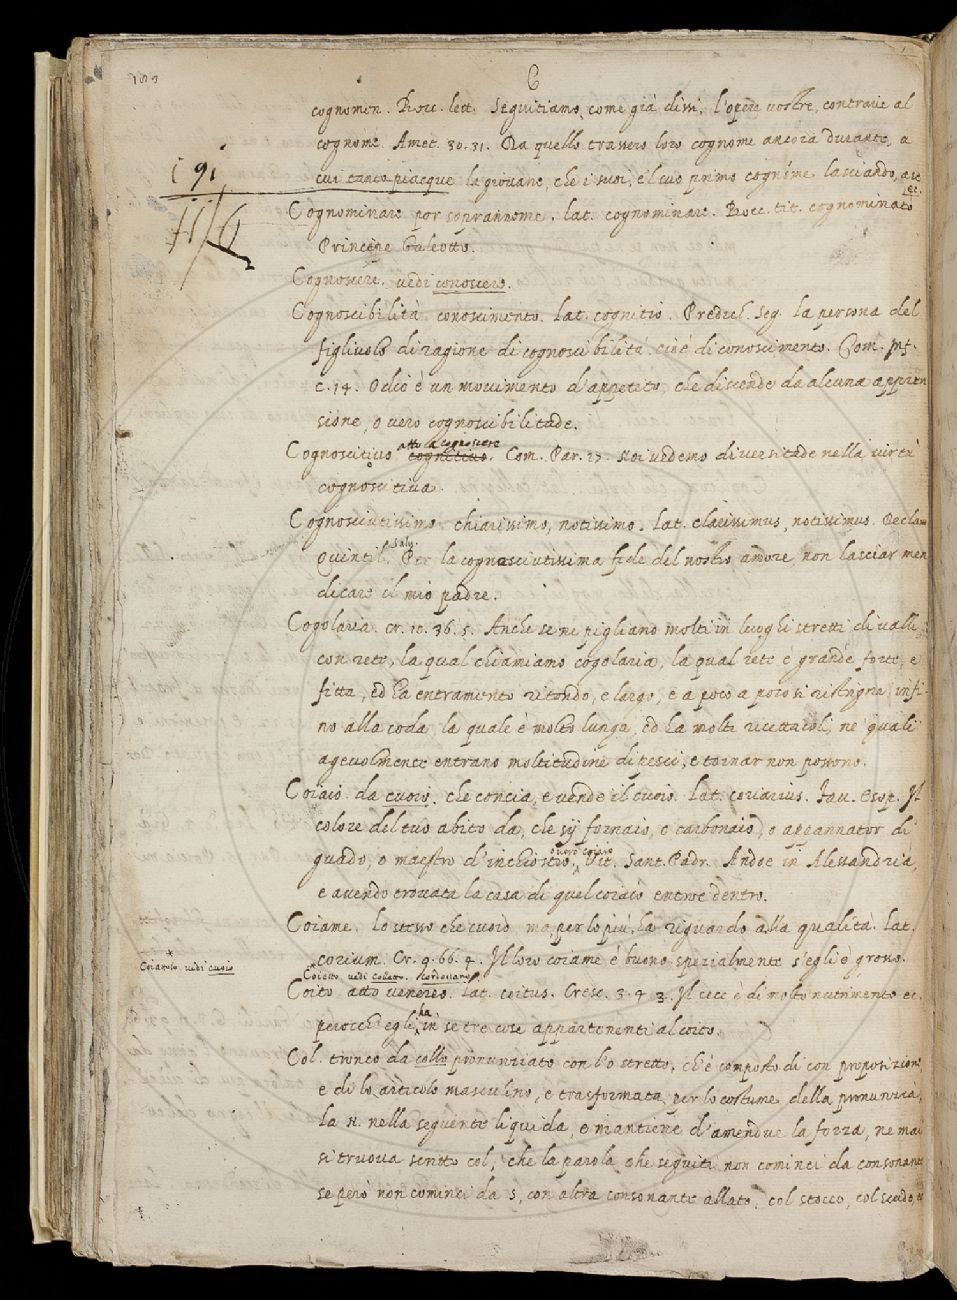 C
cognomen. Bocc. lett. Seguitiamo, come già dissi, l'opere vostre, contrarie al
cognome. Amet. 30. 31. Da quello trassero loro cognome ancora durante, a
191
cui tanto piacque la giovane, che i suoi, e 'l suo primo cognome lasciando, 
ec.
Cognominare por soprannome. lat. cognominare. Bocc. tit. cognominato
Principe Galeotto.
Cognoscere. vedi conoscere.
Cognoscibilità conoscimento. lat. cognitio. Predich. Seg. la persona del
figliuolo di ragione di cognoscibilità cioè di conoscimento. Com. Inf.
c. 14. Odio è un movimento d'appetito, che discende da alcuna appren
sione, o vero cognoscibilitade.
atto a cognoscere
Cognoscitivo cognitivo. Com. Par. 27. Noi vedemo diversitade nella virtù
cognoscitiva.
Cognosciutissimo. chiarissimo, notissimo. lat. clarissimus, notissimus. Declam
Quintil. Per la cognosciutissima fede del nostro amore non lasciar men
dicare il mio padre.
Cogolaria. cr. 10. 36. 5. Anche se ne pigliano molti in luoghi stretti di valli
con rete, la qual chiamiamo cogolaria, la qual rete è grande forte, e
fitta, ed ha entramento ritondo, e largo, e a poco a poco si ristrigne infi-
no alla coda, la quale è molto lunga, ed ha molti ricettacoli, ne' quali
agevolmente entrano moltitudine di pesci, e tornar non possono.
Coiaio. da cuoio. che concia, e vende il cuoio. lat. coriarius. Fav. Esop. Il
colore del tuo abito da, che sij fornaio, o carbonaio, o appannator di
o vero coiaio
guado, o maestro d'inchiostro. Vit. Sant. Padr. Andoe in Alessandria,
e avendo trovata la casa di quel coiaio entroe dentro.
Coiame. lo stesso che cuoio ma per lo più ha riguardo alla qualità. lat.
corium. Cr. 9. 66. 4. Il loro coiame è buono spezialmente s'egli è grosso.
* Coiattolo vedi cuoio
* Coietto vedi Coletto. Stordonare
Coito atto venereo. lat. coitus. Cresc. 3. 4 3. Il cece è di molto nutrimento ec.
ha
perocchè egli in se tre cose appartenenti al coito.
Col. tronco da collo pronunziato con l'o stretto, ch'è composto di con proposizione
e di lo articolo masculino, e trasformata, per lo costume della pronunzia,
la N. nella seguente liquida, e mantiene d'amendue la forza, ne mai
si truova scritto col, che la parola che seguiti non cominci da consonante
se però non cominci da s, con altra consonante allato, col stocco, col scudo,